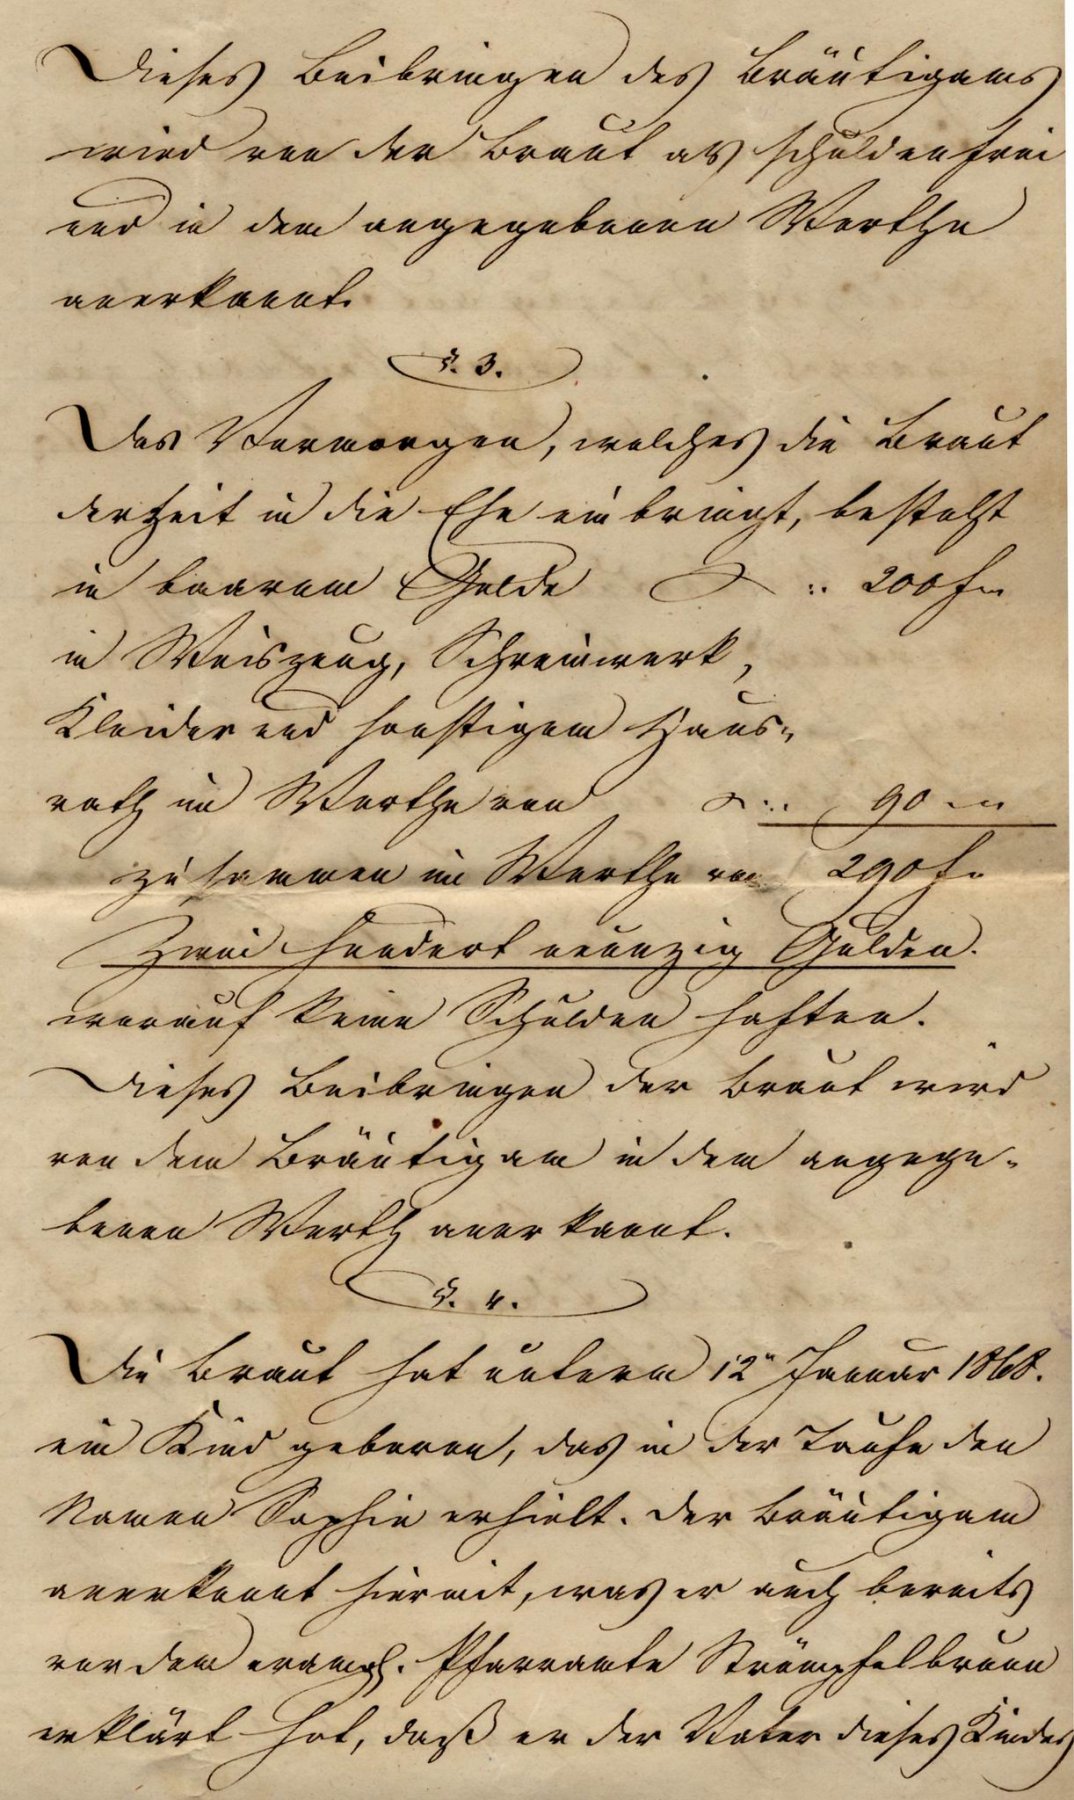 Dieses Beibringen des Bräutigams
wird von der Braut als schuldenfrei
und in dem angegebenen Werthe
anerkannt.
§. 3.
Das Vermoegen, welches die Braut
derzeit in die Ehe einbringt, besteht
in baarem Gelde :: 200 f
in Weiszeug, Schreinwerk,
Kleider und sonstigem Haus-
rath im Werthe von :: 90 "
zusammen im Werthe von 290 f.
Zwei hundert neunzig Gulden.
worauf keine Schulden haften.
Dieses Beibringen der Braut wird
von dem Bräutigam in dem angege-
benen Werth anerkannt.
§. 4.
Die Braut hat unterm 12n Januar 1868.
ein Kind geboren, das in der Taufe den
Namen Sophie erhielt. Der Bräutigam
anerkannt hiermit, was er auch bereits
vor dem evangl. Pfarramte Strümpfelbrunn
erklärt hat, daß er der Vater dieses Kindes